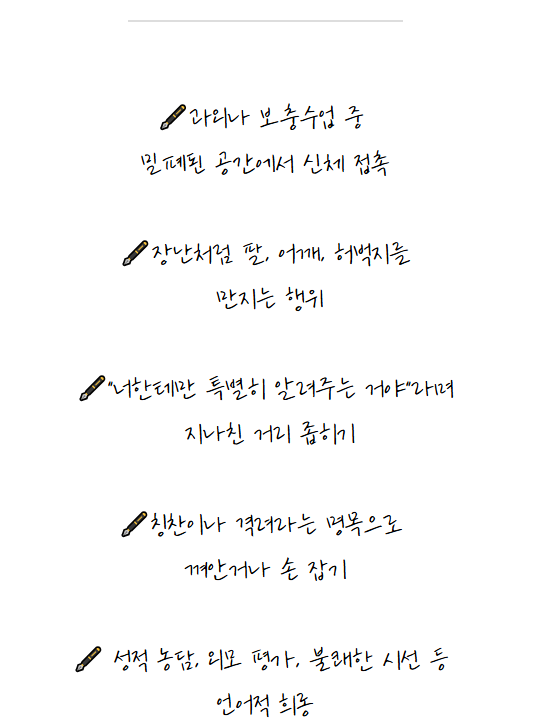 🖋️과외나 보충수업 중
밀폐된 공간에서 신체 접촉
🖋️장난처럼 팔, 어깨, 허벅지를
만지는 행위
🖋️"너한테만 특별히 알려주는 거야"라며
지나친 거리 좁히기
🖋️칭찬이나 격려라는 명목으로
껴안거나 손 잡기
🖋️ 성적 농담, 외모 평가, 불쾌한 시선 등
언어적 희롱